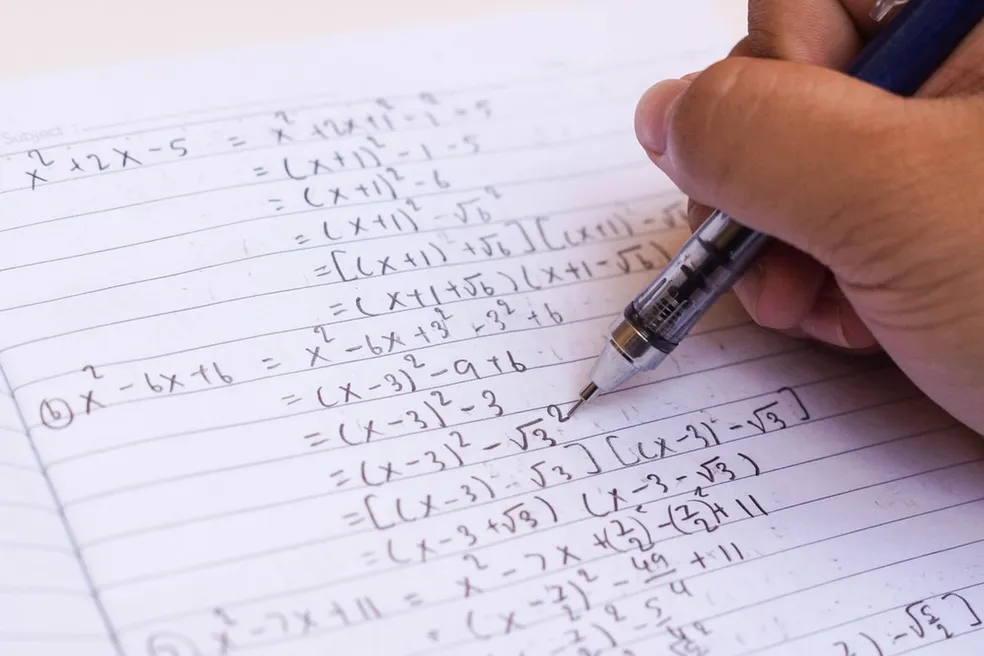 Subject :
x² + 2x - 5 = x² + 2x + 1² - 1² - 5
= (x+1)² - 1 - 5
= (x+1)² - 6
= (x+1)² - √6²
= [(x+1) + √6] [(x+1) - √6
= (x+1+√6)(x+1-√6)
(b) x² - 6x + 6 = x² - 6x + 3² - 3² + 6
= (x-3)² - 9 + 6
= (x-3)² - 3
= (x-3)² - √3²
= [(x-3) - √3] [(x-3) - √3]
= (x-3+√3) (x-3-√3)
x² - 7x + 11 = x² - 7x + (7/2)² - (7/2)² + 11
= (x - 7/2)² - 49/4 + 11
7/2)² - 5/4
) - √5/2]